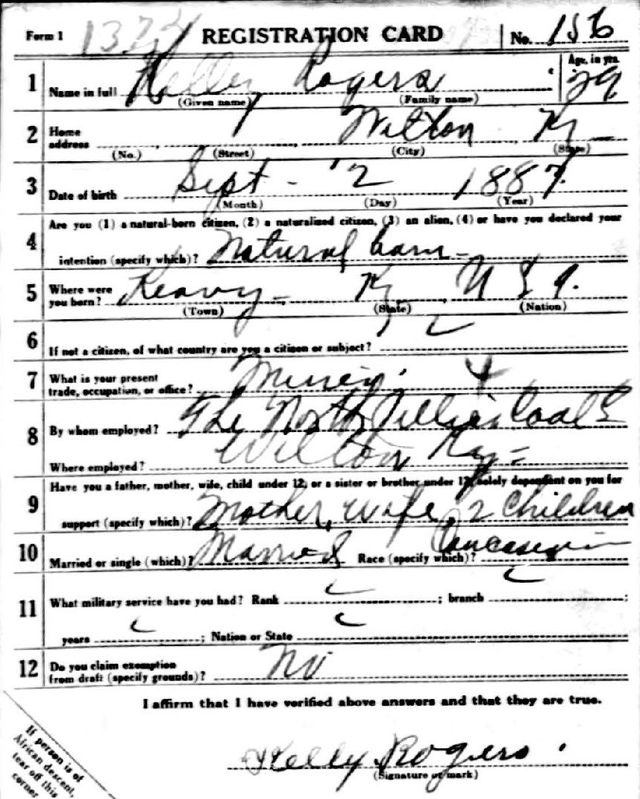 Form 1 REGISTRATION CARD No. 156
1 Name in full Kelley Rogers Age, in yrs. 29
(Given name) (Family name)
2 Home address Wilton Ky
(No.) (Street) (City) (State)
3 Date of birth Sept - 2 1887
(Month) (Day) (Year)
4 Are you (1) a natural-born citizen, (2) a naturalized citizen, (3) an alien, (4) or have you declared your
intention (specify which)? Natural born
5 Where were you born? Keavy - Ky U S A.
(Town) (State) (Nation)
6 If not a citizen, of what country are you a citizen or subject?
7 What is your present trade, occupation, or office?
8 By whom employed? The North Coal
Where employed? Wilton Ky -
9 Have you a father, mother, wife, child under 12, or a sister or brother under 12, solely dependent on you for
support (specify which)? Mother, wife, 2 Children
10 Married or single (which)? Married Race (specify which)? Caucasian
11 What military service have you had? Rank ; branch ;
years ; Nation or State
12 Do you claim exemption from draft (specify grounds)? No
I affirm that I have verified above answers and that they are true.
Kelly Rogers.
(Signature or mark)
If person is of
African descent,
tear off this
corner